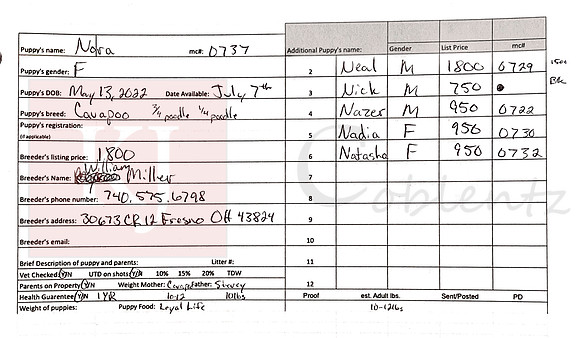 Puppy's name: Nora mc#: 0737
Puppy's gender: F
Puppy's DOB: May 13, 2022 Date Available: July 7th
Puppy's breed: Cavapoo 3/4 poodle 1/4 poodle
Puppy's registration:
(if applicable)
Breeder's listing price: 1,800
Breeder's Name: William Miller
Breeder's phone number: 740.575.6798
Breeder's address: 30673 CR 12 Fresno OH 43824
Breeder's email:
Brief Description of puppy and parents: Litter #:
Vet Checked: Y/N UTD on shots: Y/N 10% 15% 20% TDW
Parents on Property: Y/N Weight Mother: Cavapoo Father:
Health Guarentee: Y/N 1 YR 10-12 10lbs
Weight of puppies: Puppy Food: Loyal Life
Additional Puppy's name: Gender List Price mc#
2 Neal M 1800 0729
3 Nick M 750
4 Nazer M 950 0722
5 Nadia F 950 0730
6 Natasha F 950 0732
7
8
9
10
11
12
Proof est. Adult lbs. Sent/Posted PD
10-12lbs
Coblentz